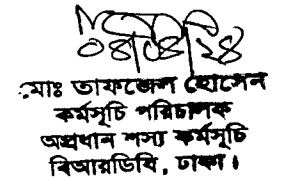 ০৪/০৪/২৪
মোঃ তাফজেল হোসেন
কর্মসূচি পরিচালক
অপ্রধান শস্য কর্মসূচি
বিআরডিবি, ঢাকা।